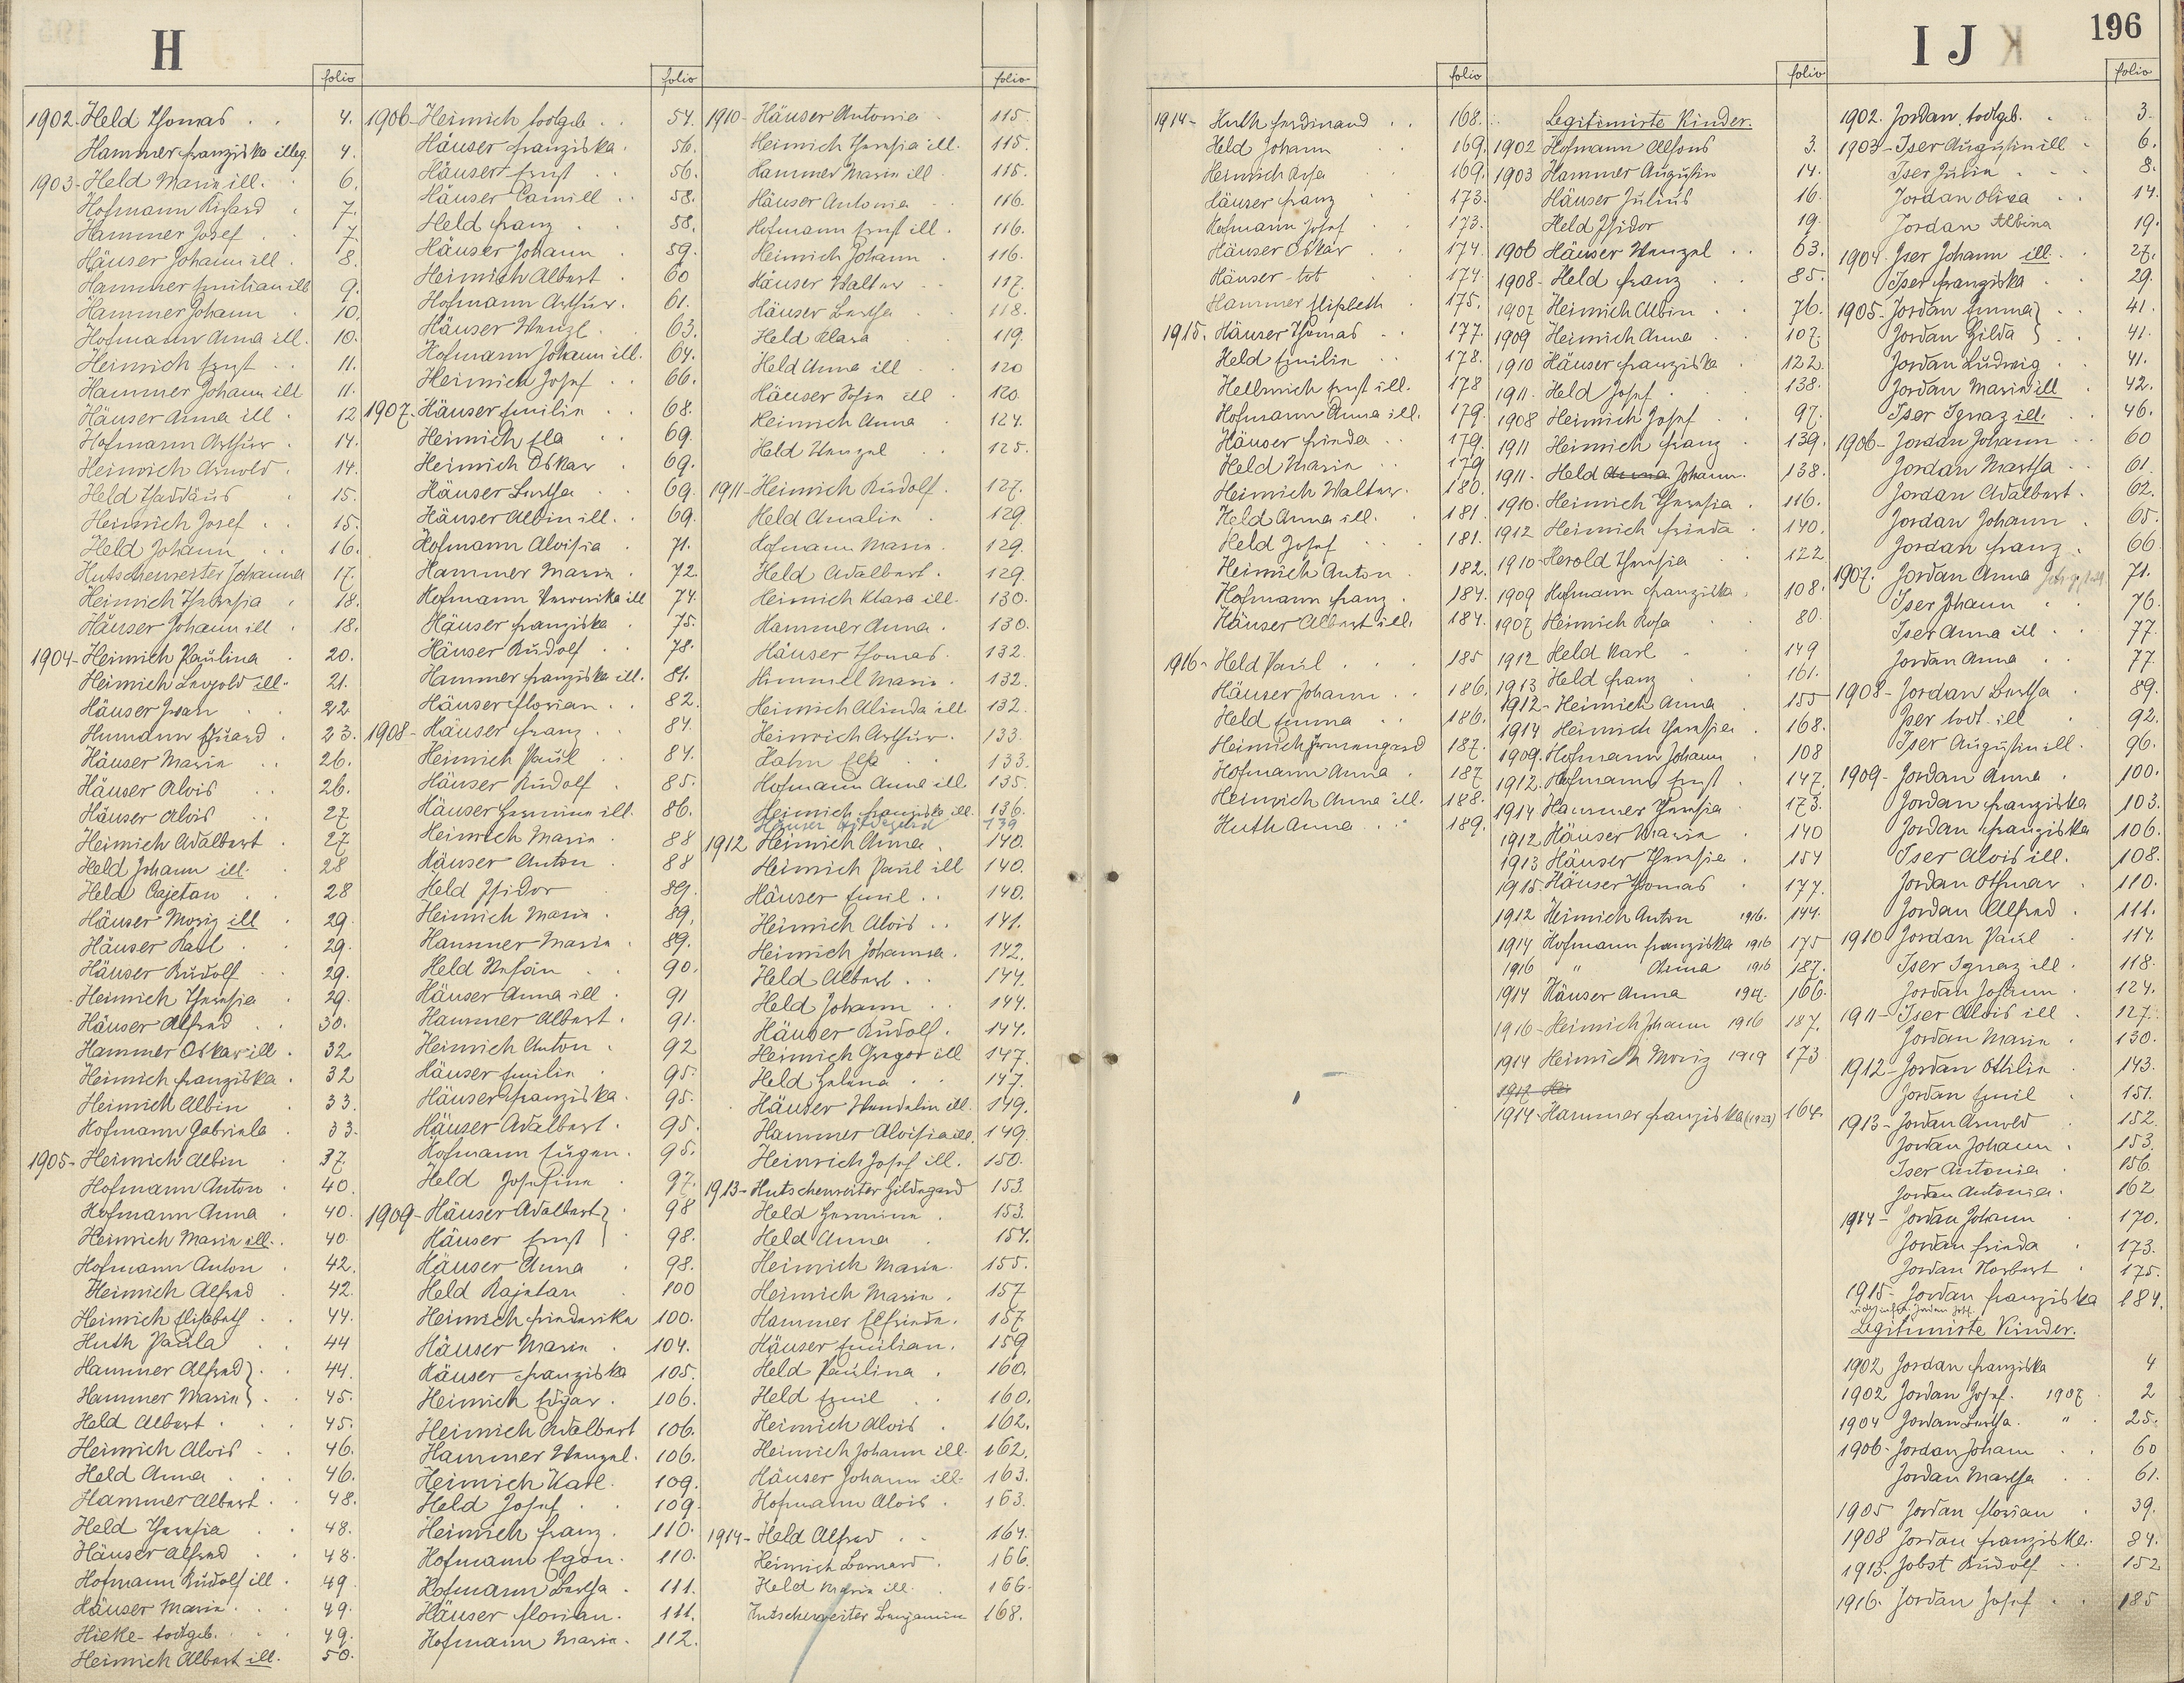 H
folio
1902. Held Thomas 4.
Hammer Franziska illeg. 4.
1903- Held Maria ill. 6.
Hofmann Richard 7.
Hammer Josef 7.
Häuser Johann ill. 8.
Hammer Emilian ill 9.
Hammer Johann 10.
Hofmann Anna ill. 10.
Heinrich Ernst 11.
Hammer Johann ill 11.
Häuser Anna ill 12
Hofmann Arthur 14.
Heinrich Arnold 14.
Held Thaddäus 15.
Heinrich Josef 15.
Held Johann 16.
Hutschenreiter Johanna 17.
Heinrich Theresia 18.
Häuser Johann ill 18.
1904- Heinrich Paulina 20.
Heinrich Leopold ill. 21.
Häuser Johann 22
Humann Eduard 23.
Häuser Maria 26.
Häuser Alois 26.
Häuser Alois 27
Heinrich Adalbert 27
Held Johann ill. 28
Held Cajetan 28
Häuser Moriz ill 29.
Häuser Karl 29.
Häuser Rudolf 29.
Heinrich Theresia 29.
Häuser Alfred 30.
Hammer Oskar ill. 32.
Heinrich Franziska 32
Heinrich Albin 33.
Hofmann Gabriela 33.
1905- Heinrich Albin 37.
Hofmann Anton 40.
Hofmann Anna 40.
Heinrich Maria ill. 40.
Hofmann Anton 42.
Heinrich Alfred 42.
Heinrich Elisabeth 44.
Huth Paula 44
Hammer Alfred } 44.
Hammer Maria } 45.
Held Albert 45.
Heinrich Alois 46.
Held Anna 46.
Hammer Albert 48.
Held Theresia 48.
Häuser Alfred 48.
Hofmann Rudolf ill. 49.
Häuser Maria 49.
Hieke todtgeb. 49.
Heinrich Albert ill. 50.
folio
1906- Heinrich todtgeb. 54.
Häuser Franziska 56.
Häuser Ernst 56.
Häuser Camill 58.
Held Franz 58.
Häuser Johann 59.
Heinrich Albert 60
Hofmann Arthur. 61.
Häuser Wenzl. 63.
Hofmann Johann ill. 64.
Heinrich Josef 66.
1907- Häuser Emilia 68.
Heinrich Ella 69.
Heinrich Oskar 69.
Häuser Bertha 69.
Häuser Albin ill. 69.
Hofmann Aloisia 71.
Hammer Maria 72
Hofmann Veronika ill 74.
Häuser Franziska 75.
Häuser Rudolf 78.
Hammer Franziska ill. 81.
Häuser Florian 82.
1908- Häuser Franz 84.
Heinrich Paul 84.
Häuser Rudolf 85.
Häuser Hermine ill. 86.
Heinrich Maria 88
Häuser Anton 88
Held Isidor 89.
Heinrich Maria 89.
Hammer Maria 89.
Held Stefan 90.
Häuser Anna ill 91
Hammer Albert 91.
Heinrich Anton 92
Häuser Emilie 95.
Häuser Franziska 95.
Häuser Adalbert 95.
Hofmann Eugen 95.
Held Josefina 97.
1909- Häuser Adalbert } 98
Häuser Ernst } 98.
Häuser Anna 98.
Held Kajetan 100
Heinrich Friederika 100.
Häuser Maria 104.
Häuser Franziska 105.
Heinrich Edgar 106.
Heinrich Adalbert 106.
Hammer Wenzel. 106.
Heinrich Karl 109.
Held Josef 109.
Heinrich Franz 110.
Hofmann Egon. 110.
Hofmann Bertha 111.
Häuser Florian. 111.
Hofmann Maria. 112.
folio
1910- Häuser Antonia 115.
Heinrich Theresia ill. 115.
Hammer Maria ill 115.
Häuser Antonia 116.
Hofmann Ernst ill. 116.
Heinrich Johann 116.
Häuser Walter 117.
Häuser Bertha 118.
Held Klara 119.
Held Anna ill 120
Häuser Sofia ill 120.
Heinrich Anna 124.
Held Wenzel 125.
1911- Heinrich Rudolf. 127.
Held Amalia 129.
Hofmann Maria. 129.
Held Adalbert. 129.
Heinrich Klara ill. 130.
Hammer Anna. 130.
Häuser Thomas. 132.
Himmel Maria. 132.
Heinrich Alinda ill 132.
Heinrich Arthur. 133.
Hahn Elsa 133.
Hofmann Anna ill. 135.
Heinrich Franziska ill. 136.
Häuser Hildegard 139
1912 Heinrich Anna 140.
Heinrich Paul ill 140.
Häuser Emil 140.
Heinrich Alois 141.
Heinrich Johanna. 142.
Held Albert 144.
Held Johann 144.
Häuser Rudolf. 144.
Heinrich Gregor ill 147.
Held Helena 147.
Häuser Wendelin ill. 149.
Hammer Aloisia ill. 149.
Heinrich Josef ill. 150.
1913- Hutschenreiter Hildegard 153.
Held Hermina. 153.
Held Anna 154.
Heinrich Maria. 155.
Heinrich Maria. 157
Hammer Elfrieda. 157
Häuser Emilian. 159
Held Paulina 160.
Held Emil 160.
Heinrich Alois 162.
Heinrich Johann ill. 162.
Häuser Johann ill. 163.
Hofmann Alois 163.
1914- Held Alfred 164.
Heinrich Bernard 166.
Held Maria ill. 166.
Hutschenreiter Benjamin 168.
folio
1914- Huth Ferdinand 168.
Held Johann 169.
Heinrich Rosa 169.
Häuser Franz 173.
Hofmann Josef 173.
Häuser Oskar 174
Häuser tot 174.
Hammer Elisbeth 175.
1915. Häuser Thomas 177
Held Emilia 178.
Hellmich Ernst ill. 178
Hofmann Anna ill. 179.
Häuser Frieda 179.
Held Maria 179
Heinrich Walter. 180.
Held Anna ill. 181.
Held Josef 181.
Heinrich Anton 182.
Hofmann Franz. 184.
Häuser Albert ill. 184.
1916- Held Paul 185
Häuser Johann 186.
Held Emma 186.
Heinrich Irmengard 187.
Hofmann Anna 187
Heinrich Anna ill. 188.
Huth Anna 189.
folio
Legitimirte Kinder.
1902 Hofmann Alfons 3.
1903 Hammer Augustin 14.
Häuser Julius 16.
Held Isidor 19.
1906 Häuser Wenzel 63.
1908- Held Franz 85.
1907 Heinrich Albin 76.
1909 Heinrich Anna 107.
1910 Häuser Franziska 122.
1911. Held Josef 138.
1908 Heinrich Josef 97.
1911 Heinrich Franz 139.
1911. Held Anna Johann. 138.
1910. Heinrich Theresia 116.
1912 Heinrich Frieda 140.
1910 Herold Theresia 122
1909 Hofmann Franziska 108.
1907 Heinrich Rosa 80.
1912 Held Karl 149
1913 Held Franz 161.
1912- Heinrich Anna 155
1914 Heinrich Theresia 168.
1909. Hofmann Johann 108
1912. Hofmann Ernst 147.
1914 Hammer Theresia 173.
1912 Häuser Maria 140
1913 Häuser Theresia 154
1915. Häuser Thomas 177.
1912 Heinrich Anton 1916. 144.
1914 Hofmann Franziska 1916 175
1916 " Anna 1916 187.
1914 Häuser Anna 1917. 166.
1916- Heinrich Johann 1916 187.
1914 Heinrich Moriz 1919 173
1917 Hei
1914- Hammer Franziska (1923) 164.
I J K 196
folio
1902. Jordan todtgeb. 3.
1903- Iser Augustin ill 6.
Iser Julia 8.
Jordan Olivia 14.
Jordan Albina 19.
1904. Iser Johann ill. 27.
Iser Franziska 29.
1905- Jordan Emma } 41.
Jordan Hilda } 41.
Jordan Ludwig 41.
Jordan Maria ill 42.
Iser Ignaz ill. 46.
1906- Jordan Johann 60
Jordan Martha 61.
Jordan Adalbert. 62.
Jordan Johann 65.
Jordan Franz 66
1907. Jordan Anna 71.
Iser Johann 76.
Iser Anna ill 77.
Jordan Anna 77.
1908- Jordan Bertha 89.
Iser todt ill 92.
Iser Augustin ill. 96.
1909- Jordan Anna 100.
Jordan Franziska 103.
Jordan Franziska 106.
Iser Alois ill. 108.
Jordan Othmar 110.
Jordan Alfred 111.
1910 Jordan Paul 114.
Iser Ignaz ill. 118.
Jordan Johann 124.
1911- Iser Alois ill 127.
Jordan Maria 130.
1912- Jordan Ottilia 143.
Jordan Emil 151.
1913- Jordan Arnold 152.
Jordan Johann 153.
Iser Antonia 156.
Jordan Antonia. 162
1914- Jordan Johann 170.
Jordan Frieda 173.
Jordan Norbert 175.
1915- Jordan Franziska 184.
Legitimirte Kinder.
1902 Jordan Franziska 4
1902 Jordan Josef. 1907 2
1904 Jordan Bertha. " 25.
1906- Jordan Johann 60
Jordan Martha 61.
1905 Jordan Florian 39.
1908 Jordan Franziska. 84.
1913. Jobst Rudolf 152
1916. Jordan Josef 185